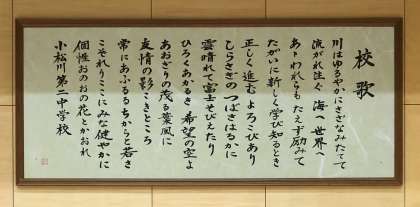 校歌
川はゆるやかにさざなみたてて
流がれ注ぐ 海へ世界へ
あゝわれらも たえず励みて
たがいに新しく学び知るとき
正しく進む よろこびあり
しらさぎの つばさはるかに
雲晴れて富士そびえたり
ひろくあかるき 希望の空よ
あおぎりの茂る葉風に
友情の影こきところ
常にあふるるちからと若さ
こぞれりここにみな健やかに
個性おのおの花とかおれ
小松川第二中学校